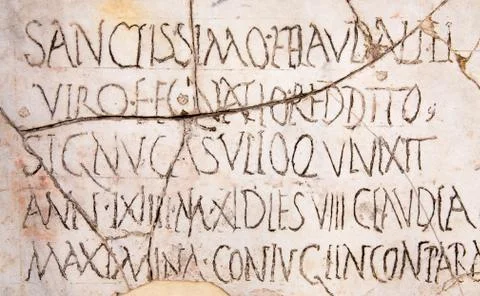 SANCTISSIMO·ET LAUDALILI
VIRO·FEC NATIO REDDITO
SIGNU CASULIO Q VIVIXIT
ANN·LXIII·M·XI DIES VIII CLAUDIA
MAXIMINA CONIUGI INCONPARA